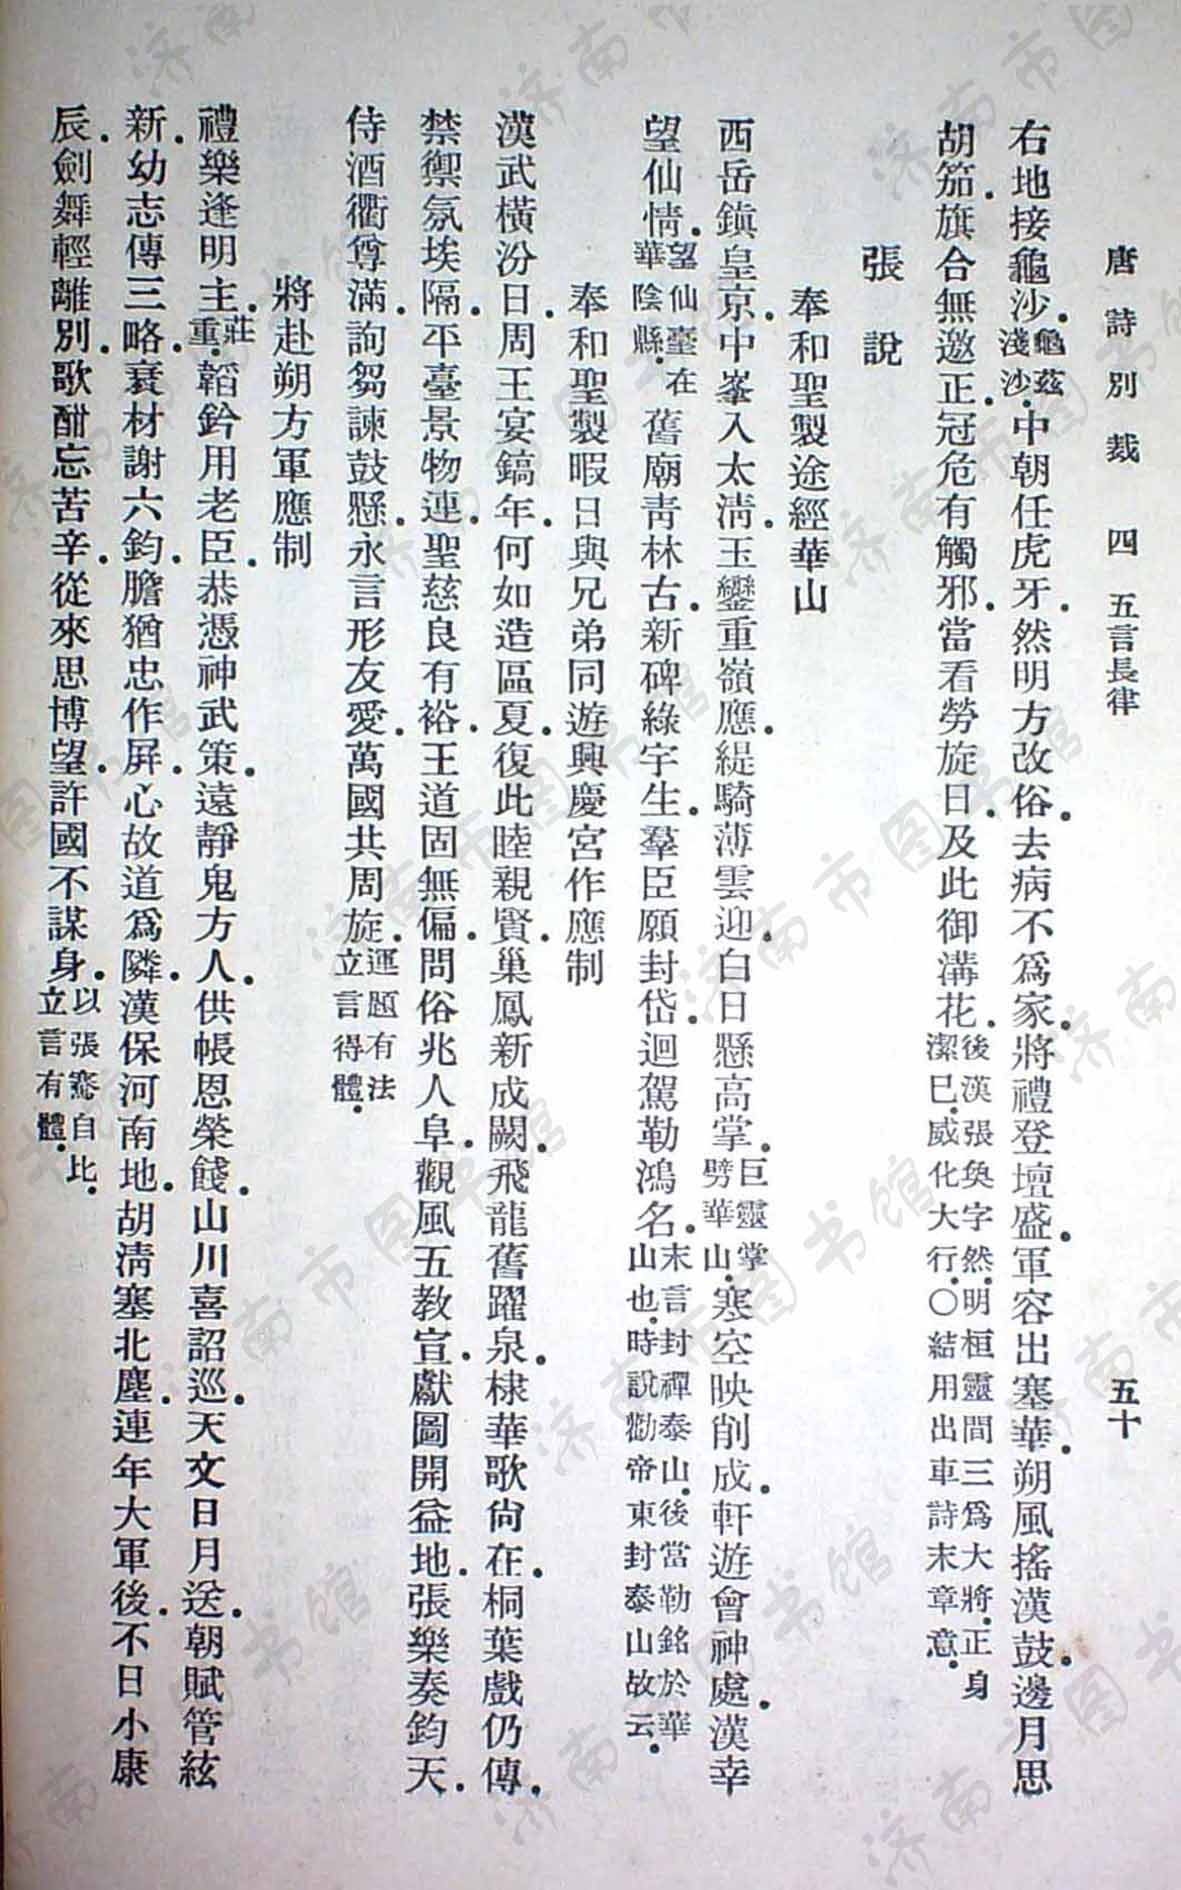 唐詩別裁 四 五言長律 五十
右地接龜沙。龜茲淺沙。中朝任虎牙。然明方改俗。去病不爲家。將禮登壇盛。軍容出塞華。朔風搖漢鼓。邊月思
胡笳。旗合無邀正。冠危有觸邪。當看勞旋日。及此御溝花。後漢張奐字然明。桓靈間三爲大將。正身潔巳。威化大行。〇結用出車詩末章意。
張說
奉和聖製途經華山
西岳鎮皇京。中峯入太清。玉鑾重嶺應。緹騎薄雲迎。白日懸高掌。巨靈掌劈華山。寒空映削成。軒遊會神處。漢幸
望仙情。望仙臺在華陰縣。舊廟青林古。新碑綠字生。羣臣願封岱。迴駕勒鴻名。末言封禪泰山。後當勒銘於華山也。時說勸帝東封泰山故云。
奉和聖製暇日與兄弟同遊興慶宮作應制
漢武橫汾日。周王宴鎬年。何如造區夏。復此睦親賢。巢鳳新成闕。飛龍舊躍泉。棣華歌尙在。桐葉戲仍傳。
禁籞氛埃隔。平臺景物連。聖慈良有裕。王道固無偏。問俗兆人阜。觀風五教宣。獻圖開益地。張樂奏鈞天。
侍酒衢尊滿。詢芻諫鼓懸。永言形友愛。萬國共周旋。運題有法立言得體。
將赴朔方軍應制
禮樂逢明主。莊重。韜鈐用老臣。恭憑神武策。遠靜鬼方人。供帳恩榮餞。山川喜詔巡。天文日月送。朝賦管絃
新。幼志傳三略。衰材謝六鈞。膽猶忠作屏。心故道爲隣。漢保河南地。胡淸塞北塵。連年大軍後。不日小康
辰。劍舞輕離別。歌酣忘苦辛。從來思博望。許國不謀身。以張騫自比。立言有體。
济南市图书馆